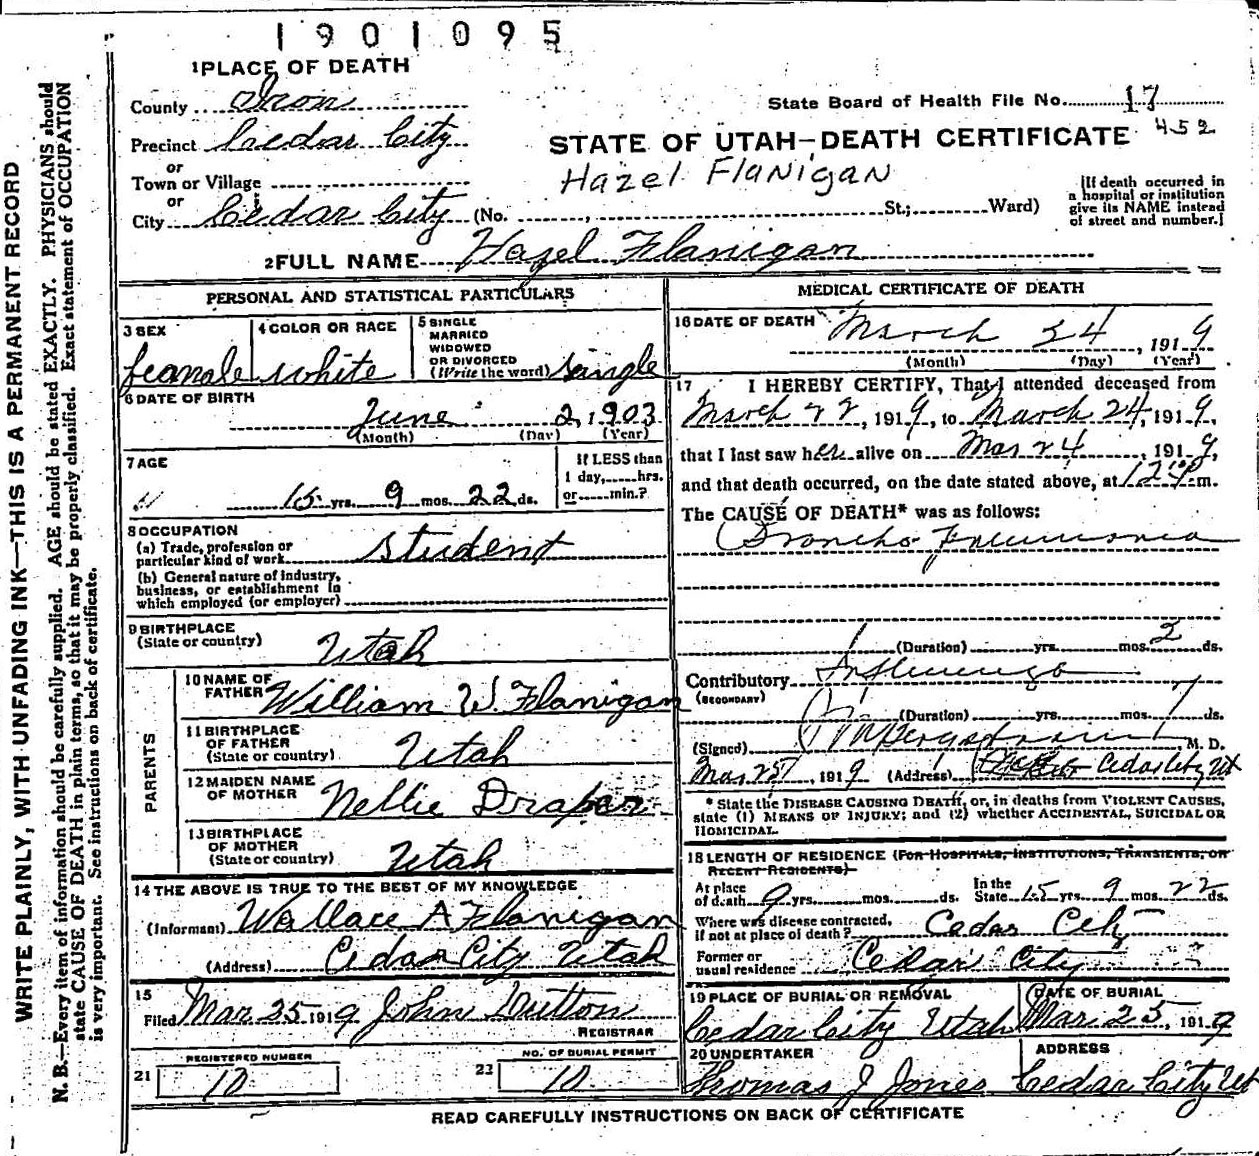 1901095
1 PLACE OF DEATH
County Iron
State Board of Health File No. 17
Precinct Cedar City
STATE OF UTAH—DEATH CERTIFICATE 452
or
Town or Village
Hazel Flanigan
or
City Cedar City (No. , St.; Ward)
[If death occurred in
a hospital or institution
give its NAME instead
of street and number.]
2 FULL NAME Hazel Flanigan
PERSONAL AND STATISTICAL PARTICULARS
3 SEX
feamale
4 COLOR OR RACE
white
5 SINGLE
MARRIED
WIDOWED
OR DIVORCED
(Write the word) single
6 DATE OF BIRTH
June 2, 1903
(Month) (Day) (Year)
7 AGE
15 yrs. 9 mos. 22 ds.
If LESS than
1 day, hrs.
or min.?
8 OCCUPATION
(a) Trade, profession or
particular kind of work student
(b) General nature of industry,
business, or establishment in
which employed (or employer)
9 BIRTHPLACE
(State or country) Utah
PARENTS
10 NAME OF
FATHER William W. Flanigan
11 BIRTHPLACE
OF FATHER
(State or country) Utah
12 MAIDEN NAME
OF MOTHER Nellie Draper
13 BIRTHPLACE
OF MOTHER
(State or country) Utah
14 THE ABOVE IS TRUE TO THE BEST OF MY KNOWLEDGE
(Informant) Wallace A Flanigan
(Address) Cedar City Utah
15
Filed Mar 25 1919 John
REGISTRAR
REGISTERED NUMBER
21 10
NO. OF BURIAL PERMIT
22 10
MEDICAL CERTIFICATE OF DEATH
16 DATE OF DEATH March 24, 1919
(Month) (Day) (Year)
17 I HEREBY CERTIFY, That I attended deceased from
March 22, 1919, to March 24, 1919,
that I last saw her alive on Mar 24, 1919,
and that death occurred, on the date stated above, at m.
The CAUSE OF DEATH* was as follows:
Broncho Pneumonia
(Duration) yrs. mos. 2 ds.
Contributory Influenza
(SECONDARY)
(Duration) yrs. mos. 7 ds.
(Signed) M. D.
1919 (Address) Cedar City Ut
* State the DISEASE CAUSING DEATH, or, in deaths from VIOLENT CAUSES,
state (1) MEANS OF INJURY; and (2) whether ACCIDENTAL, SUICIDAL OR
HOMICIDAL.
18 LENGTH OF RESIDENCE (FOR HOSPITALS, INSTITUTIONS, TRANSIENTS, OR
RECENT RESIDENTS)
At place
of death 9 yrs. mos. ds.
In the
State 15 yrs. 9 mos. 22 ds.
Where was disease contracted,
if not at place of death? Cedar City
Former or
usual residence Cedar City
19 PLACE OF BURIAL OR REMOVAL
Cedar City Utah
DATE OF BURIAL
Mar 25, 1919
20 UNDERTAKER
Thomas J Jones
ADDRESS
Cedar City Ut
READ CAREFULLY INSTRUCTIONS ON BACK OF CERTIFICATE
WRITE PLAINLY, WITH UNFADING INK—THIS IS A PERMANENT RECORD
N. B.—Every item of information should be carefully supplied. AGE should be stated EXACTLY. PHYSICIANS should
state CAUSE OF DEATH in plain terms, so that it may be properly classified. Exact statement of OCCUPATION
is very important. See instructions on back of certificate.